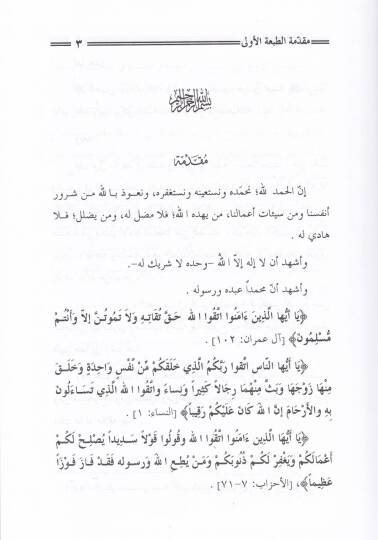 مقدّمة الطبعة الأولى ٣
بسم الله الرحمن الرحيم
مُقَدِّمَة
إنّ الحمد لله؛ نحمَده ونستعينه ونستغفره، ونعوذ بالله من شرور
أنفسنا ومن سيئات أعمالنا، من يهده الله؛ فلا مضل له، ومن يضلل؛ فلا
هادي له .
وأشهد أن لا إله إلاّ اللهُ -وحده لا شريك له-.
وأشهد أنّ محمداً عبده ورسوله .
﴿يَا أيُّها الَّذِينَ ءَامَنُوا اتَّقُوا الله حَقَّ تُقَاتِهِ وَلاَ تَمُوتُنَّ إلاّ وَأنْتُمْ
مُّسْلِمُونَ﴾ [آل عمران: ١٠٢] .
﴿يَا أيُّها النّاس اتَّقوا رَبَّكُمُ الَّذِي خَلَقَكُمْ مِّنْ نَّفْسٍ وَاحِدَةٍ وَخَلَقَ
مِنْهَا زَوْجَهَا وَبَثَّ مِنْهُمَا رِجَالاً كَثِيراً وَنِسَاءً واتَّقُوا الله الَّذِي تَسَاءَلُونَ
بِهِ والأَرْحَامَ إنَّ الله كَانَ عَلَيْكُمْ رَقِيباً﴾ [النساء: ١] .
﴿يَا أيُّهَا الَّذِينَ ءَامَنُوا اتَّقُوا الله وقُولُوا قَوْلاً سَدِيداً يُصْلِحْ لَكُمْ
أعْمَالَكُمْ وَيَغْفِرْ لَكُمْ ذُنُوبَكُمْ وَمَنْ يُطِعِ الله وَرسوله فَقَدْ فَازَ فَوْزاً
عَظِيماً﴾، [الأحزاب: ٧٠-٧١] .